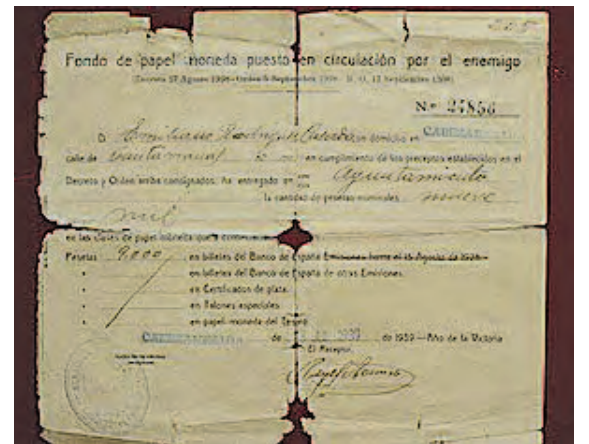 Fondo de papel moneda puesto en circulación por el enemigo
(Decreto 27 Agosto 1938-Orden 6 Septiembre 1938-B. O. 17 Septiembre 1938)
N.º 27856
D. Emiliano Rodríguez con domicilio en
calle de en cumplimiento de los preceptos establecidos en el
Decreto y Orden arriba consignados, ha entregado en Ayuntamiento
la cantidad de pesetas nominales nueve
mil
en las clases de papel moneda que a
Pesetas 9.000 en billetes del Banco de España Emisiones hasta el 18 Agosto de 1936
en billetes del Banco de España de otras Emisiones.
en Certificados de plata.
en Talones especiales.
en papel-moneda del Tesoro.
de 1939 de 1939—Año de la Victoria
El Receptor,